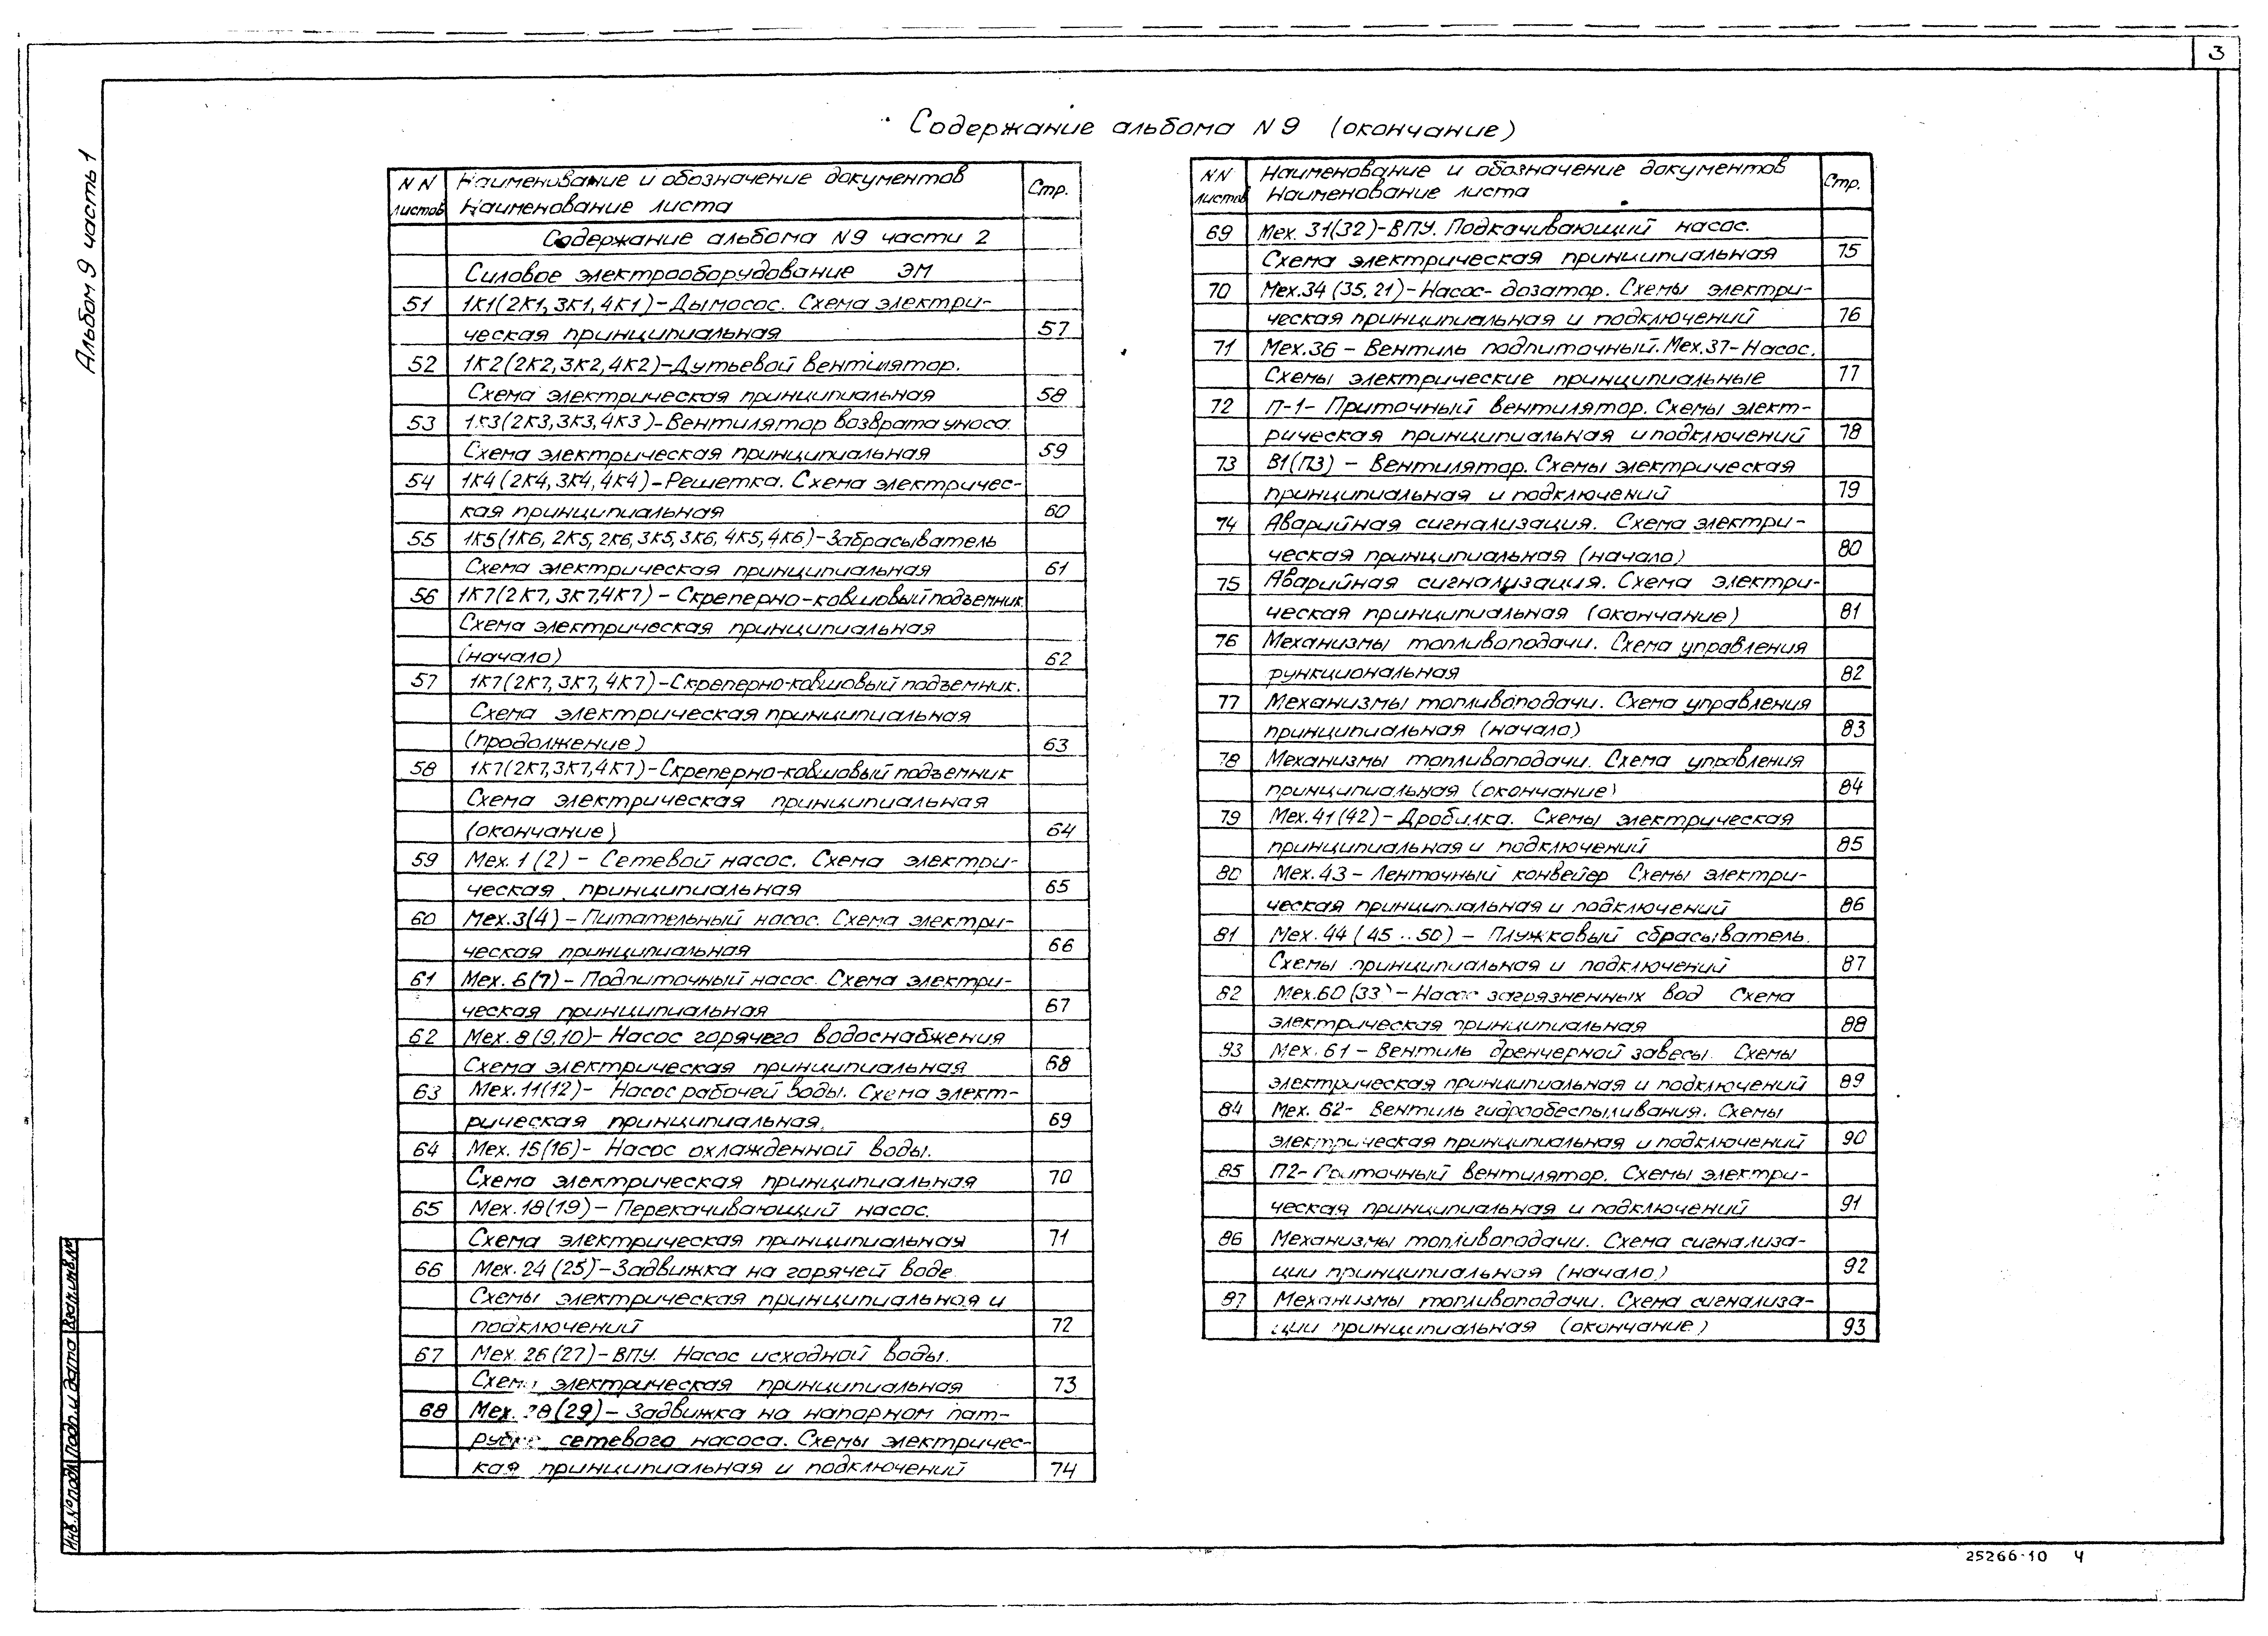 3
Альбом 9 часть 1
Содержание альбома N 9 (окончание)
NN листов
Наименование и обозначение документов
Наименование листа
Стр.
Содержание альбома N9 части 2
Силовое электрооборудование ЭМ
51 1К1(2К1, 3К1, 4К1)-Дымосос. Схема электри-
ческая принципиальная 57
52 1К2(2К2,3К2,4К2)-Дутьевой вентилятор.
Схема электрическая принципиальная 58
53 1К3(2К3,3К3,4К3)-Вентилятор возврата уноса.
Схема электрическая принципиальная 59
54 1К4(2К4,3К4,4К4)-Решетка. Схема электричес-
кая принципиальная 60
55 1К5(1К6, 2К5, 2К6, 3К5, 3К6, 4К5, 4К6)-Забрасыватель
Схема электрическая принципиальная 61
56 1К7(2К7, 3К7,4К7) - Скреперно-ковшовый подъемник.
Схема электрическая принципиальная
(начало) 62
57 1К7(2К7, 3К7, 4К7)-Скреперно-ковшовый подъемник.
Схема электрическая принципиальная
(продолжение) 63
58 1К7(2К7,3К7,4К7)-Скреперно-ковшовый подъемник
Схема электрическая принципиальная
(окончание) 64
59 Мех. 1 (2) - Сетевой насос. Схема электри-
ческая принципиальная 65
60 Мех.3(4) - Питательный насос. Схема электри-
ческая принципиальная 66
61 Мех. 6(7) - Подпиточный насос. Схема электри-
ческая принципиальная 67
62 Мех. 8(9,10)- Насос горячего водоснабжения
Схема электрическая принципиальная 68
63 Мех. 11(12)- Насос рабочей воды. Схема элект-
рическая принципиальная. 69
64 Мех. 15(16)- Насос охлажденной воды.
Схема электрическая принципиальная 70
65 Мех. 18(19) - Перекачивающий насос.
Схема электрическая принципиальная 71
66 Мех. 24 (25) -Задвижка на горячей воде.
Схемы электрическая принципиальная и
подключений 72
67 Мех. 26(27)-ВПУ. Насос исходной воды.
Схема электрическая принципиальная 73
68 Мех. 28(29)- Задвижка на напорном пат-
рубке сетевого насоса. Схемы электричес-
кая принципиальная и подключений 74
NN листов
Наименование и обозначение документов
Наименование листа
Стр.
69 Мех. 31(32)-ВПУ. Подкачивающий насос.
Схема электрическая принципиальная 75
70 Мех.34 (35, 21)-Насос-дозатор. Схемы электри-
ческая принципиальная и подключений 76
71 Мех.36 - Вентиль подпиточный. Мех.37-Насос.
Схемы электрические принципиальные 77
72 П-1- Приточный вентилятор. Схемы элект-
рическая принципиальная и подключений 78
73 В1(П3) - Вентилятор. Схемы электрическая
принципиальная и подключений 79
74 Аварийная сигнализация. Схема электри-
ческая принципиальная (начало) 80
75 Аварийная сигнализация. Схема электри-
ческая принципиальная (окончание) 81
76 Механизмы топливоподачи. Схема управления
функциональная 82
77 Механизмы топливоподачи. Схема управления
принципиальная (начало) 83
78 Механизмы топливоподачи. Схема управления
принципиальная (окончание) 84
79 Мех. 41(42)-Дробилка. Схемы электрическая
принципиальная и подключений 85
80 Мех. 43 - Ленточный конвейер Схемы электри-
ческая принципиальная и подключений 86
81 Мех. 44 (45..50) - Плужковый сбрасыватель.
Схемы принципиальная и подключений 87
82 Мех.60 (33) - Насос загрязненных вод Схема
электрическая принципиальная 88
83 Мех. 61 - Вентиль дренчерной завесы. Схемы
электрическая принципиальная и подключений 89
84 Мех. 62- Вентиль гидрообеспыливания. Схемы
электрическая принципиальная и подключений 90
85 П2- Приточный вентилятор. Схемы электри-
ческая принципиальная и подключений 91
86 Механизмы топливоподачи. Схема сигнализа-
ции принципиальная (начало) 92
87 Механизмы топливоподачи. Схема сигнализа-
ции принципиальная (окончание) 93
Инв. № подл. Подп. и дата Взам. инв. №
25266-10 4